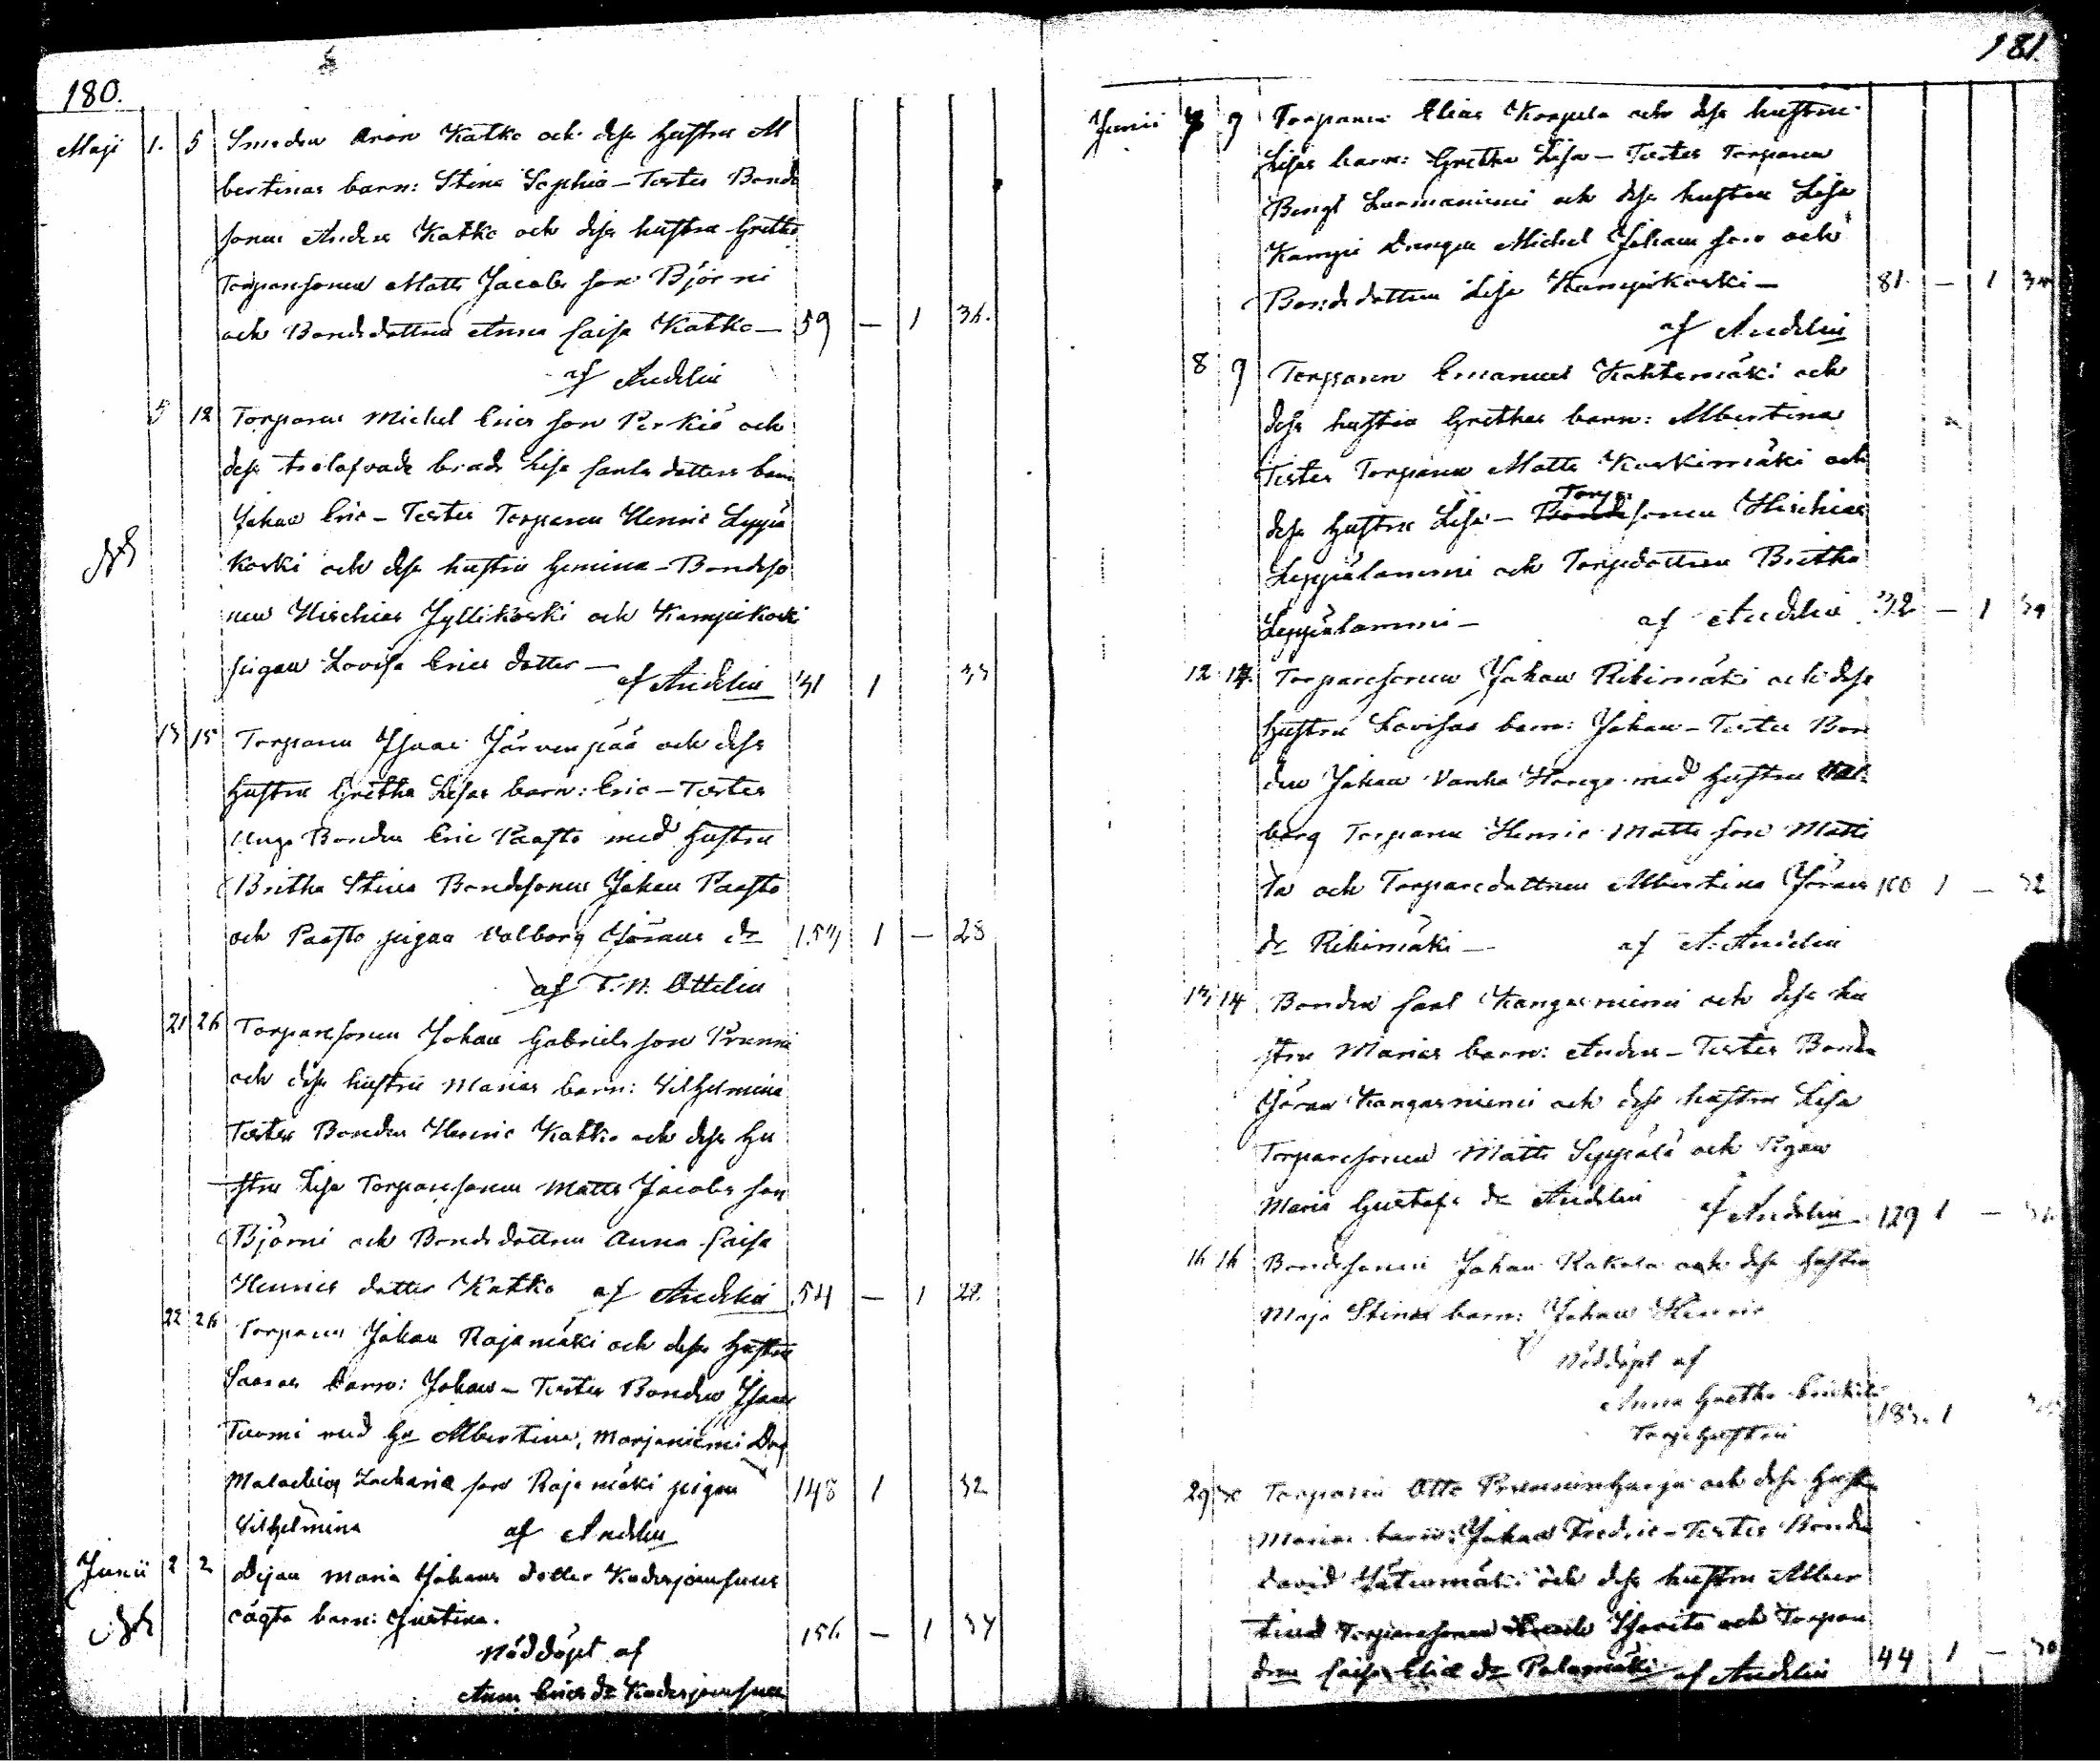 180.
Maji 1. 5 Smeden Aron Katko och dess hustru Al
bertinas barn: Stina Sophia - Testes Bonde
sonen Anders Katko och dess hustru Gretha
Torparesonen Matts Jacobs son Björni
och Bondedottren Anna Caisa Katko - 59 - 1 36.
af Andelin
5 12 Torparen Michel Erics son Perkiö och
dess trolofvade brud Lisa Carls dotters barn
Johan Eric - Testes Torparen Henric Leppä
koski och dess hustru Hemina - Bondeso
nen Hischias Jyllikoski och Kampikoski
pigan Lovisa Erics dotter - af Andelin 31 1 33
13 15 Torparen Isaac Järvenpää och dess
hustru Gretha Lisas barn: Eric - Testes
Unga Bonden Eric Paasto med hustru
Britha Stina Bondesonen Johan Paasto
och Paasto pigan Valborg Görans dr 153 1 - 28
af F. N. Ottelin
21 26 Torparesonen Johan Gabriels son Prunni
och dess hustru Marias barn: Vilhelmina
Testes Bonden Henric Katko och dess hu
stru Lisa Torparesonen Matts Jacobs son
Björni och Bondedottren Anna Caisa
Henrics dotter Katko af Andelin 54 - 1 28.
22 26 Torparen Johan Rajamäki och dess hustru
Saaras barn: Johan - Testes Bonden Isaac
Tuomi med hu Albertina, Marjaniemi Drg
Malachias Zacharia son Rajamäki pigan 148 1 32
Vilhelmina af Andelin
Junii 2 2 Pigan Maria Johans dotter Kuderjoensuus
oägta barn: Justina.
Nöddöpt af 156 - 1 34
Anna Erics dr Kuderjoensuu
181.
Junii 7 9 Torparen Elias Korpela och dess hustru
Lisas barn: Gretha Lisa - Testes Torparen
Bengt Luomaniemi och dess hustru Lisa
Kampi Drengen Michel Johans son och
Bondedottren Lisa Kampikoski - 81. - 1 34
af Andelin
8 9 Torparen Emanuel Kahtamäki och
dess hustru Grethas barn: Albertina
Testes Torparen Matts Koskimäki och
Torpa
dess hustru Lisa - Bondesonen Hischias
Leppälammi och Torpdottren Britha
Leppälammi - af Andelin 32 - 1 39
12 14. Torparesonen Johan Rikimäki och dess
hustru Lovisas barn: Johan - Testes Bon
den Johan Vanha Hange med hustru Val
borg Torparen Henric Matts son Matti
la och Torparedottren Albertina Görans 100 1 - 32
dr Rikimäki - af A. Andelin
13 14 Bonden Carl Kangasniemi och dess hu
stru Marias barn: Anders - Testes Bonden
Göran Kangasniemi och dess hustru Lisa
Torparesonen Matts Seppälä och Pigan
Maria Gustafs dr Andelin af Andelin 129 1 -
16 16 Bondesonen Johan Kakola och dess hustru
Maja Stinas barn: Johan Henric
Nöddöpt af
Anna Gretha
Torp hustru 183. 1
29 30 Torparen Otto och dess hustru
Marias barn: Johan Fredric - Testes Bonden
David och dess hustru Alber
tina Torparesonen och Torpare
drn Caisa Elia dr Palomäki af Andelin 44 1 - 30